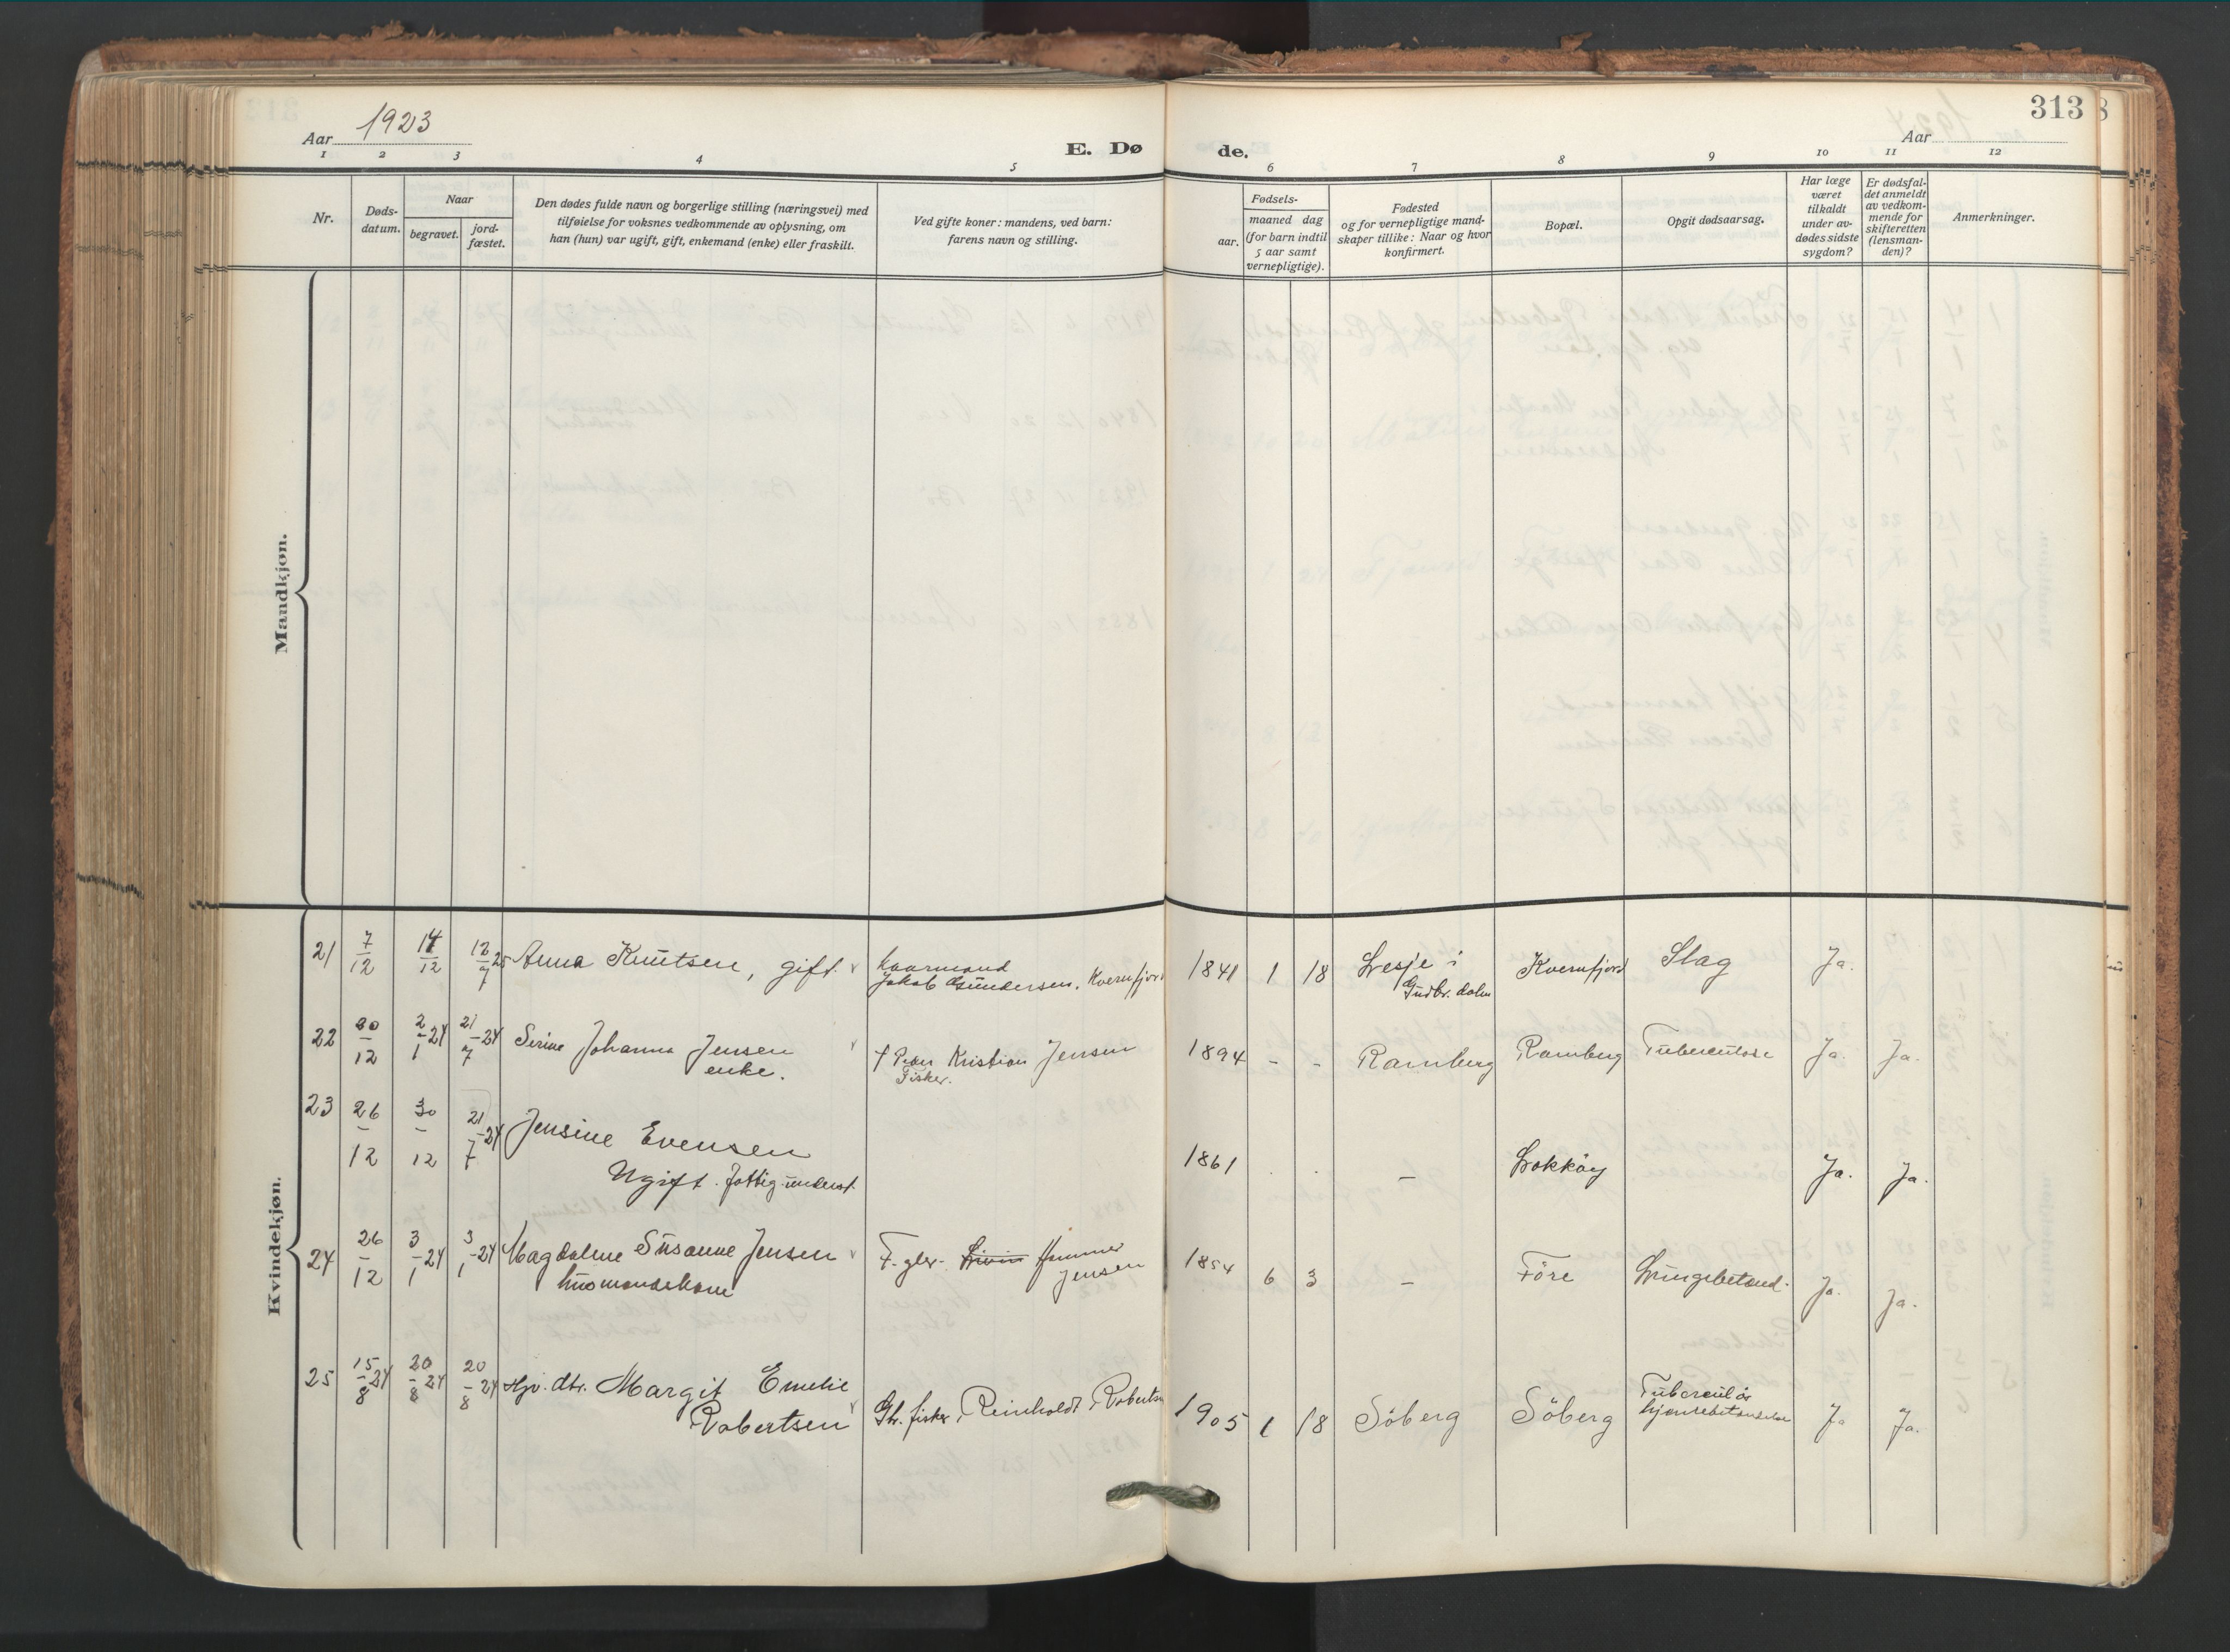 313
Aar 1923
E. Døde.
Aar
1 2 3 4 5 6 7 8 9 10 11 12
Nr.
Døds-
datum.
Naar
begravet.
jord-
fæstet.
Den dødes fulde navn og borgerlige stilling (næringsvei) med
tilføielse for voksnes vedkommende av oplysning, om
han (hun) var ugift, gift, enkemand (enke) eller fraskilt.
Ved gifte koner: mandens, ved barn:
farens navn og stilling.
Fødsels-
aar.
maaned dag
(for barn indtil
5 aar samt
vernepligtige).
Fødested
og for vernepligtige mand-
skaper tillike: Naar og hvor
konfirmert.
Bopæl.
Opgit dødsaarsag.
Har læge
været
tilkaldt
under av-
dødes sidste
sygdom?
Er dødsfal-
det anmeldt
av vedkom-
mende for
skifteretten
(lensman-
den)?
Anmerkninger.
Mandkjøn.
Kvindekjøn.
21 7/12 14/12 12/7 25 Anna Knutsen, gift. Kaarmand
Jakob Gundersen, Kvernfjord 1841 1 18 Lesje i
Gudbr. dalen Kvernfjord Slag Ja.
22 20/12 2/1-24 21/7-24 Serine Johanna Jensen
enke. † Peder Kristian Jensen
Fisker. 1894 - - Ramberg Ramberg Tuberculose Ja. Ja.
23 26/12 30/12 21/7-24 Jensine Evensen
Ugift. fattig underst. 1861 . . — Lokkøy Ja. Ja.
24 26/12 3/1-24 3/1-24 Magdalene Susanne Jensen
husmandskone F. gbr. Hammer
Jensen 1854 6 3 — Före Lungebetænd. Ja. Ja.
25 15/8-24 20/8-24 20/8-24 Hjv. dtr. Margit Emelie
Robertsen Gbr. fisker Reinholdt Robertsen 1905 1 18 Söberg Söberg Tuberculös
hjernebetændelse Ja Ja.